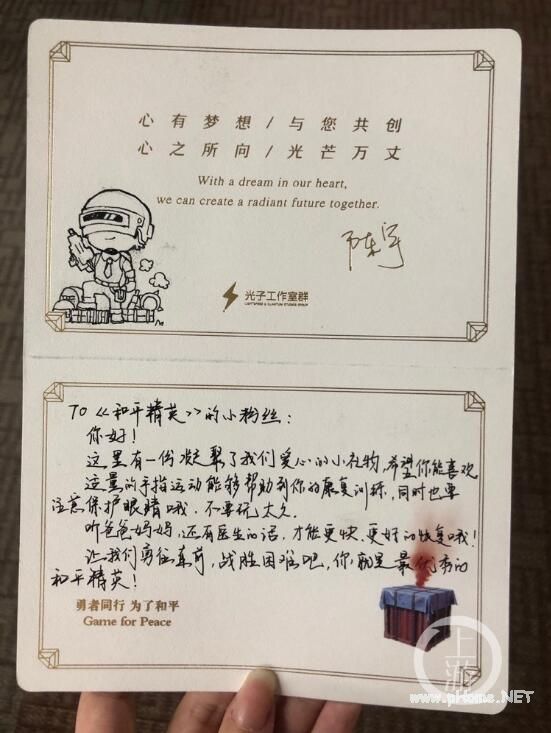 心有梦想/与您共创
心之所向/光芒万丈
With a dream in our heart,
we can create a radiant future together.
陈宇
光子工作室群
LIGHTSPEED & QUANTUM STUDIOS GROUP
TO《和平精英》的小粉丝：
你好！
这里有一份凝聚了我们爱心的小礼物，希望你能喜欢
适量的手指运动能够帮助到你的康复训练，同时也要
注意保护眼睛哦，不要玩太久。
听爸爸妈妈，还有医生的话，才能更快、更好的恢复哦！
让我们勇往直前，战胜困难吧，你，就是最优秀的
和平精英！
勇者同行 为了和平
Game for Peace
上游
www.pHome.NET